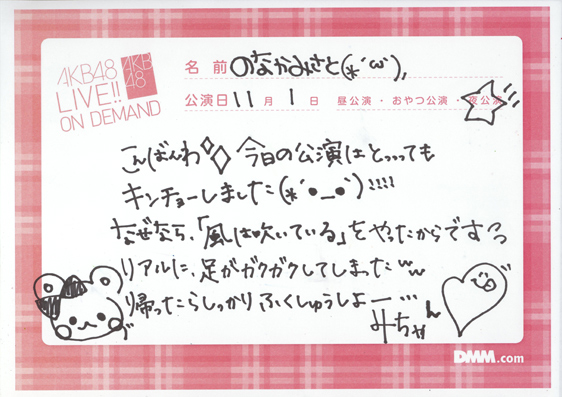 AKB48
LIVE!!
ON DEMAND
AKB
48
名前 のなかみさと(*´ω`),
公演日 11月1日 昼公演・おやつ公演・夜公演
こんばんわ 今日の公演はとっっっても
キンチョーしました(*´•_•`)!!!!
なぜなら、「風は吹いている」をやったからですっっ
リアルに、足がガクガクしてしまったww
帰ったらしっかりふくしゅうしよー…
みちゃん
DMM.com